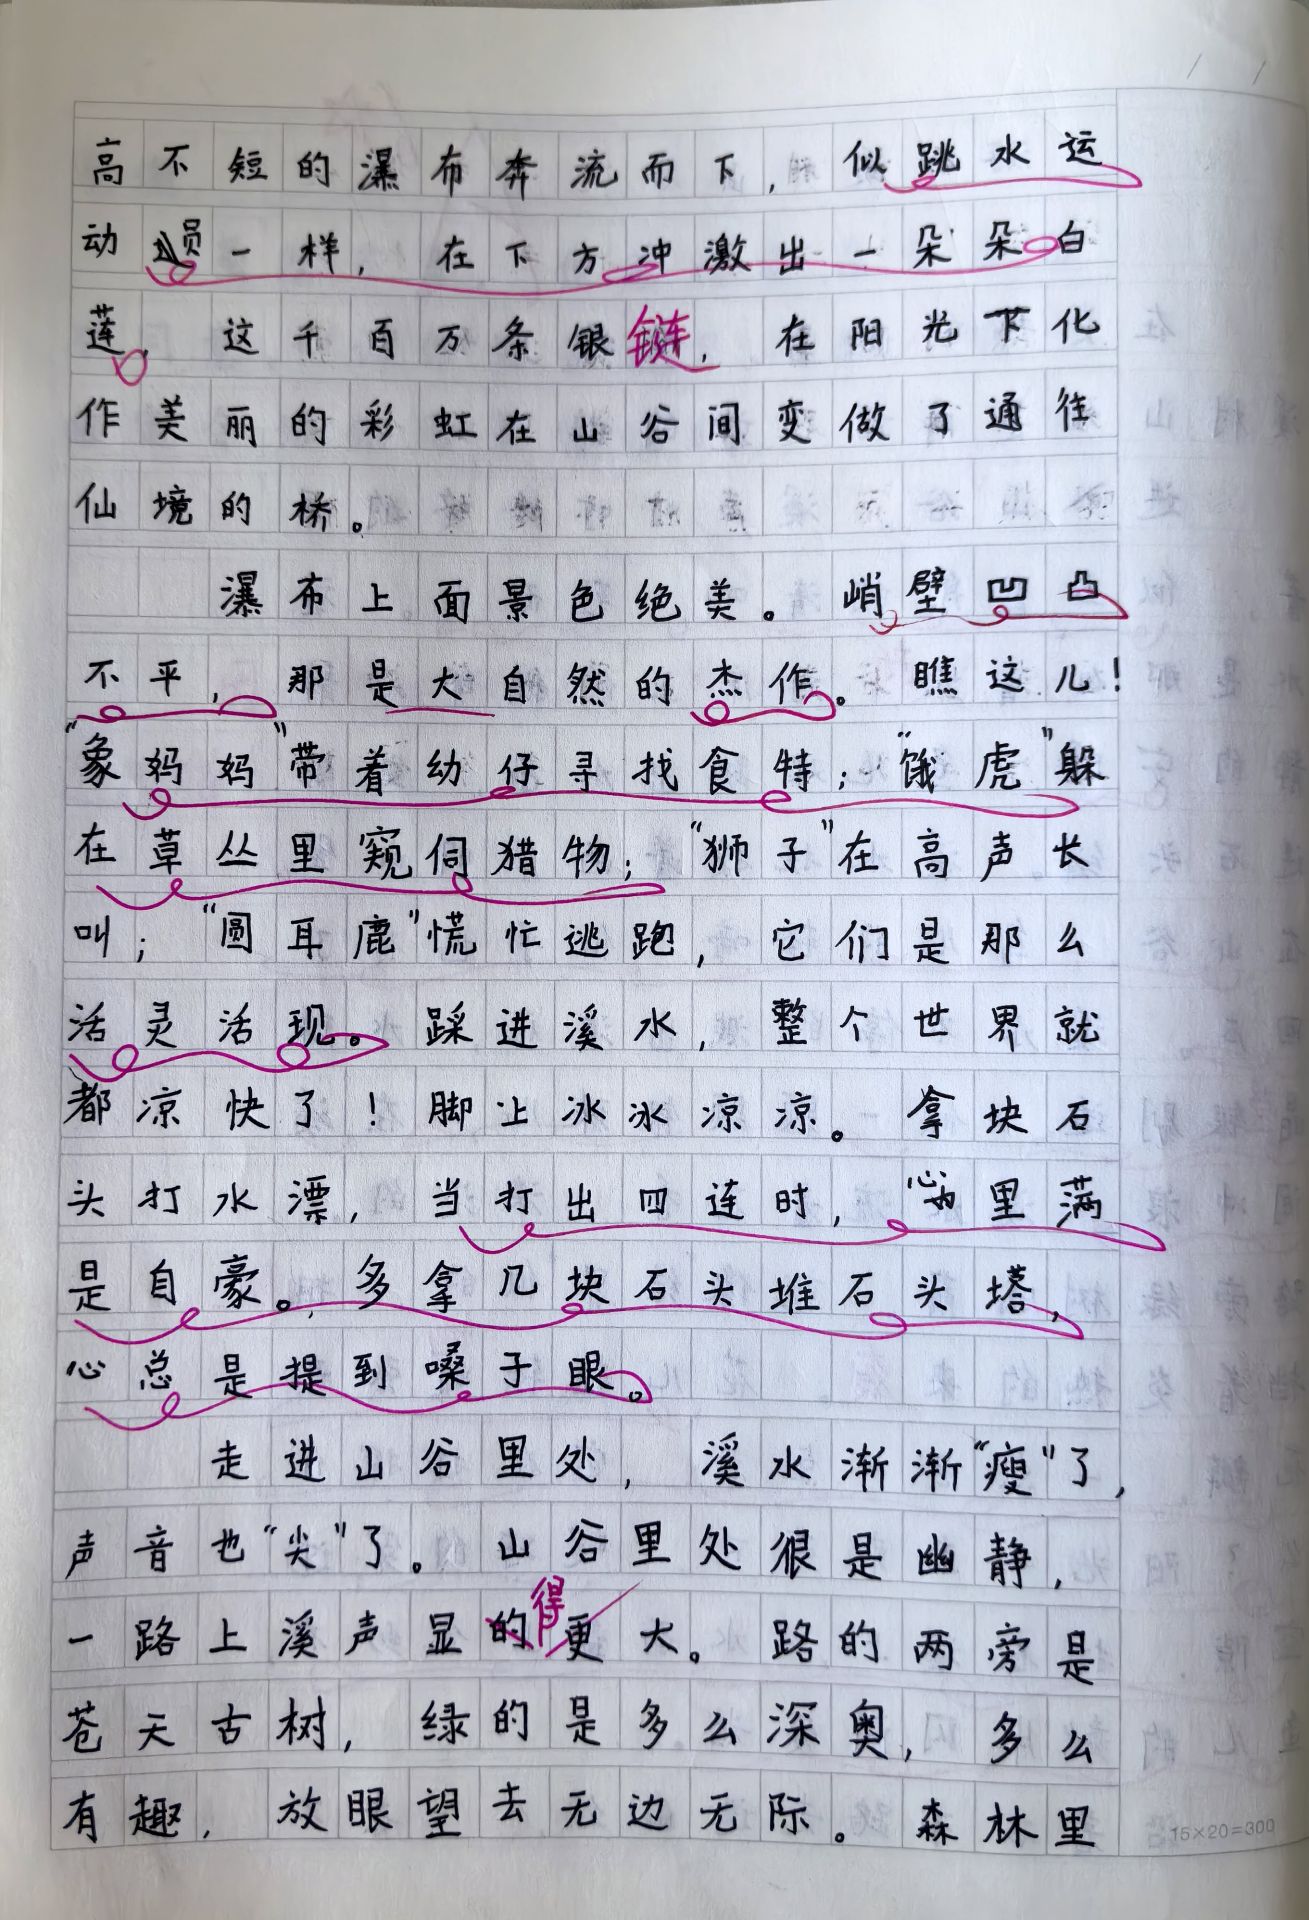 高不短的瀑布奔流而下，似跳水运
动员一样，在下方冲激出一朵朵白
莲，这千百万条银链，在阳光下化
作美丽的彩虹在山谷间变做了通往
仙境的桥。
瀑布上面景色绝美。峭壁凹凸
不平，那是大自然的杰作。瞧这儿！
“象妈妈”带着幼仔寻找食特；“饿虎”躲
在草丛里窥伺猎物；“狮子”在高声长
叫；“圆耳鹿”慌忙逃跑，它们是那么
活灵活现。踩进溪水，整个世界就
都凉快了！脚上冰冰凉凉。拿块石
头打水漂，当打出四连时，心里满
是自豪。多拿几块石头堆石头塔，
心总是提到嗓子眼。
走进山谷里处，溪水渐渐“瘦”了，
声音也“尖”了。山谷里处很是幽静，
一路上溪声显的得更大。路的两旁是
苍天古树，绿的是多么深奥，多么
有趣，放眼望去无边无际。森林里
15×20=300